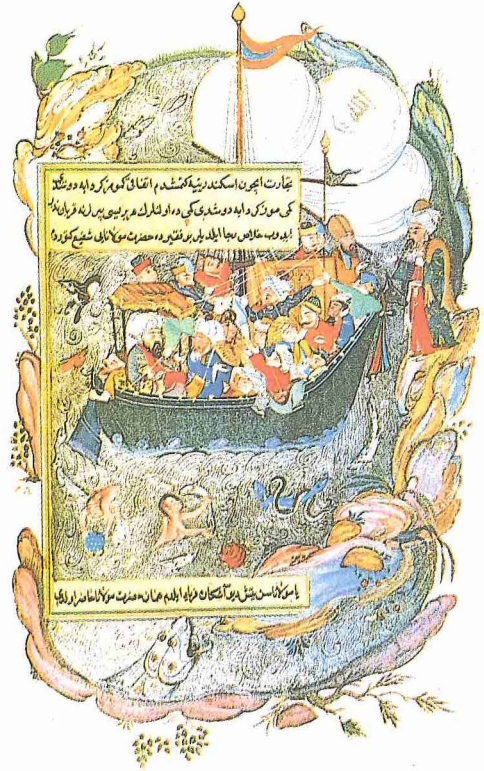 تجارت ایچون اسکندریه یه کتمشدم اتفاق کمومز کردابه دوشدی
کمی موز کردابه دوشدی کمی ده اولنلرك هر بریسی بیرلرنه قربان
ایدوب خلاص رجا ایلدیلر بن فقیر ده حضرت مولانایی شفیع کتوردم
یا مولانا سن یتش دیو آشکان فریاد ایلدم همان حضرت مولانا حاضر اولدی